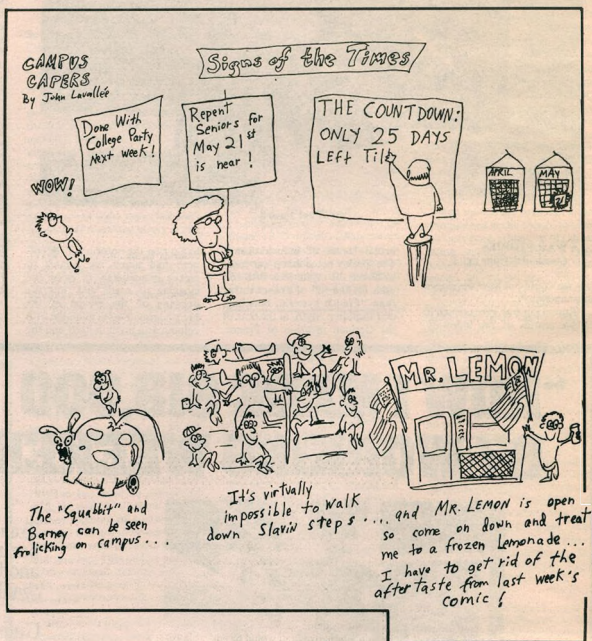 CAMPUS
CAPERS
By John Lavallée
Signs of the Times
Done With
College Party
Next week!
Repent
Seniors for
May 21st
is near!
THE COUNTDOWN:
ONLY 25 DAYS
Left Til
APRIL
MAY
21
WOW!
MR. LEMON
The "Squabbit" and
Barney can be seen
frolicking on campus...
It's virtually
impossible to walk
down Slavin steps...
... and MR. LEMON is open
so come on down and treat
me to a frozen Lemonade...
I have to get rid of the
after taste from last week's
comic!